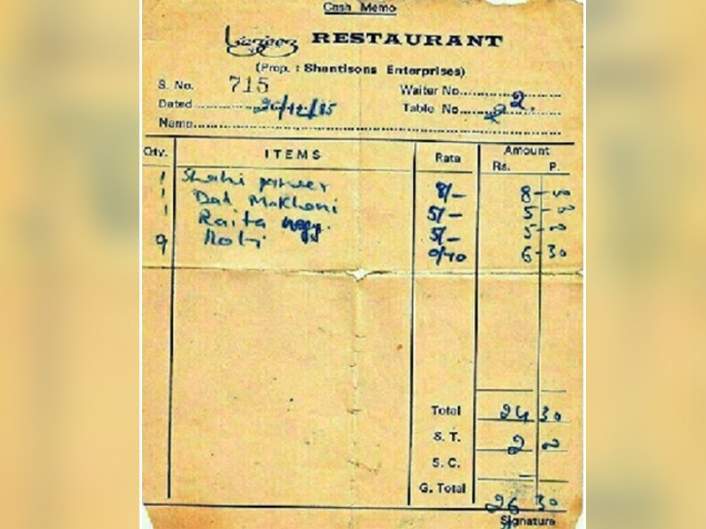 Cash Memo
Lazeez RESTAURANT
(Prop. : Shantisons Enterprises)
S. No. 715 Waiter No.
Dated 20/12/85 Table No. 2 2.
Name
Qty. ITEMS Rate Amount
Rs. P.
1 Shahi paneer 8/- 8-00
1 Dal Makhani 5/- 5-00
1 Raita 5/- 5-00
9 Roti 0/70 6-30
Total 24 30
S. T. 2 00
S. C.
G. Total 26 30
Signature